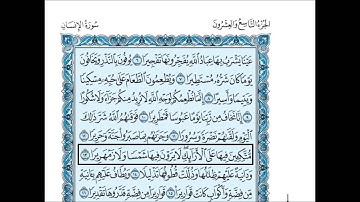 الجزء التاسع والعشرون سورة الإنسان
عَيْنًا يَشْرَبُ بِهَا عِبَادُ اللَّهِ يُفَجِّرُونَهَا تَفْجِيرًا ٦ يُوفُونَ بِالنَّذْرِ وَيَخَافُونَ
يَوْمًا كَانَ شَرُّهُ مُسْتَطِيرًا ٧ وَيُطْعِمُونَ الطَّعَامَ عَلَى حُبِّهِ مِسْكِينًا
وَيَتِيمًا وَأَسِيرًا ٨ إِنَّمَا نُطْعِمُكُمْ لِوَجْهِ اللَّهِ لَا نُرِيدُ مِنْكُمْ جَزَاءً وَلَا شُكُورًا
٩ إِنَّا نَخَافُ مِنْ رَبِّنَا يَوْمًا عَبُوسًا قَمْطَرِيرًا ١٠ فَوَقَاهُمُ اللَّهُ شَرَّ ذَلِكَ
الْيَوْمِ وَلَقَّاهُمْ نَضْرَةً وَسُرُورًا ١١ وَجَزَاهُمْ بِمَا صَبَرُوا جَنَّةً وَحَرِيرًا ١٢
مُتَّكِئِينَ فِيهَا عَلَى الْأَرَائِكِ لَا يَرَوْنَ فِيهَا شَمْسًا وَلَا زَمْهَرِيرًا ١٣
وَدَانِيَةً عَلَيْهِمْ ظِلَالُهَا وَذُلِّلَتْ قُطُوفُهَا تَذْلِيلًا ١٤ وَيُطَافُ عَلَيْهِمْ بِآنِيَةٍ
مِنْ فِضَّةٍ وَأَكْوَابٍ كَانَتْ قَوَارِيرَا ١٥ قَوَارِيرَ مِنْ فِضَّةٍ قَدَّرُوهَا تَقْدِيرًا ١٦